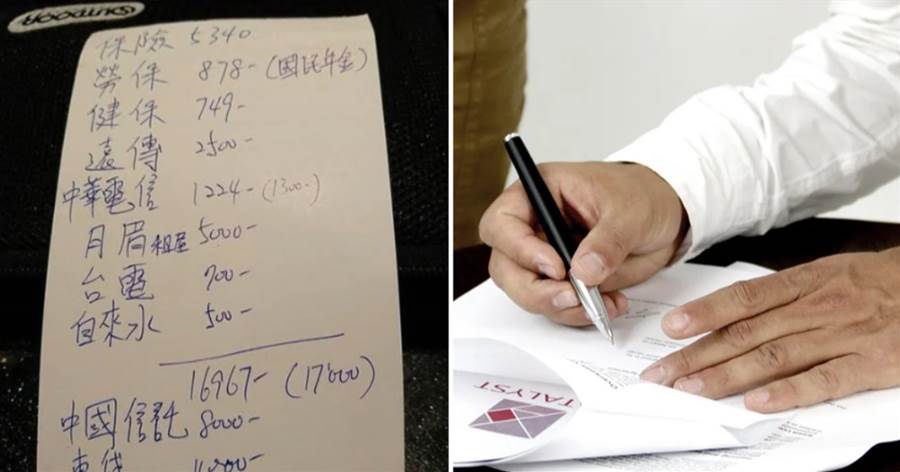 OUTDOOR
保險 5340
勞保 878-(國民年金)
健保 749-
遠傳 2500-
中華電信 1224-(1300-)
月眉租屋 5000-
台電 700-
自來水 500-
16967- (17000)
中國信託 8000-
車貸
TALYST